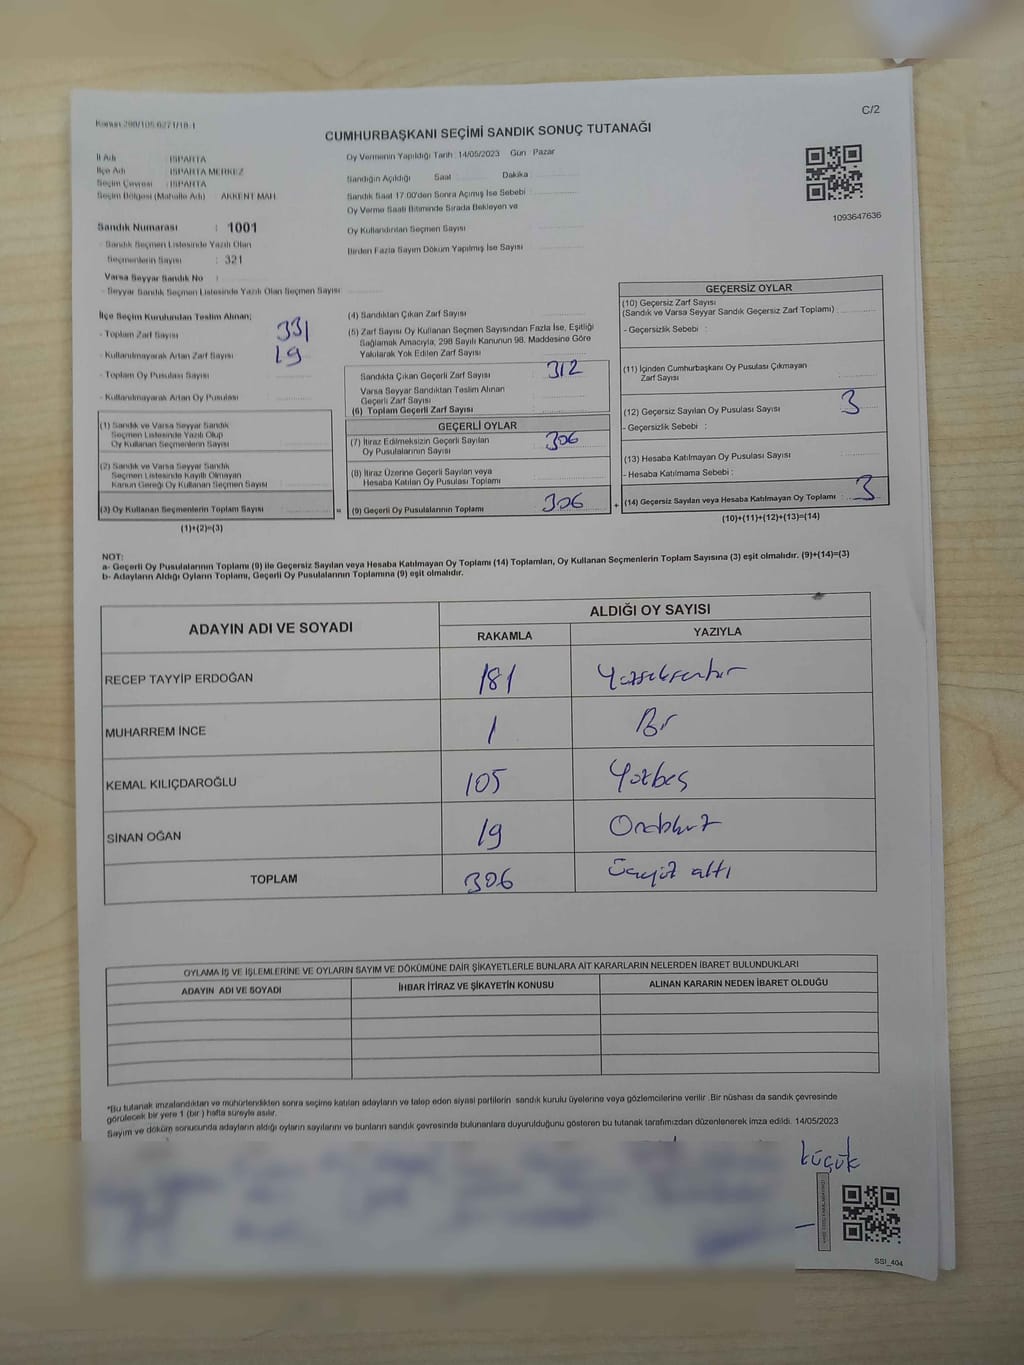 Kanun:298/105.6271/18-1
C/2
CUMHURBAŞKANI SEÇİMİ SANDIK SONUÇ TUTANAĞI
İl Adı : ISPARTA
İlçe Adı : ISPARTA MERKEZ
Seçim Çevresi : ISPARTA
Seçim Bölgesi (Mahalle Adı) AKKENT MAH.
Oy Vermenin Yapıldığı Tarih :14/05/2023 Gün : Pazar
Sandığın Açıldığı Saat Dakika
Sandık Saat 17.00'den Sonra Açımış İse Sebebi
Oy Verme Saati Bitiminde Sırada Bekleyen ve
Oy Kullandırılan Seçmen Sayısı
Birden Fazla Sayım Döküm Yapılmış İse Sayısı
1093647636
Sandık Numarası : 1001
- Sandık Seçmen Listesinde Yazılı Olan
Seçmenlerin Sayısı : 321
Varsa Seyyar Sandık No :
- Seyyar Sandık Seçmen Listesinde Yazılı Olan Seçmen Sayısı
İlçe Seçim Kurulundan Teslim Alınan;
- Toplam Zarf Sayısı 331
- Kullanılmayarak Artan Zarf Sayısı 19
- Toplam Oy Pusulası Sayısı
- Kullanılmayarak Artan Oy Pusulası
(1) Sandık ve Varsa Seyyar Sandık
Seçmen Listesinde Yazılı Olup
Oy Kullanan Seçmenlerin Sayısı
(2) Sandık ve Varsa Seyyar Sandık
Seçmen Listesinde Kayıtlı Olmayan
Kanun Gereği Oy Kullanan Seçmen Sayısı
(3) Oy Kullanan Seçmenlerin Toplam Sayısı
(1)+(2)=(3)
(4) Sandıktan Çıkan Zarf Sayısı
(5) Zarf Sayısı Oy Kullanan Seçmen Sayısından Fazla İse, Eşitliği
Sağlamak Amacıyla, 298 Sayılı Kanunun 98. Maddesine Göre
Yakılarak Yok Edilen Zarf Sayısı
Sandıkta Çıkan Geçerli Zarf Sayısı 312
Varsa Seyyar Sandıktan Teslim Alınan
Geçerli Zarf Sayısı
(6) Toplam Geçerli Zarf Sayısı
GEÇERLİ OYLAR
(7) İtiraz Edilmeksizin Geçerli Sayılan
Oy Pusulalarının Sayısı 306
(8) İtiraz Üzerine Geçerli Sayılan veya
Hesaba Katılan Oy Pusulası Toplamı
= (9) Geçerli Oy Pusulalarının Toplamı 306
GEÇERSİZ OYLAR
(10) Geçersiz Zarf Sayısı
(Sandık ve Varsa Seyyar Sandık Geçersiz Zarf Toplamı)
- Geçersizlik Sebebi :
(11) İçinden Cumhurbaşkanı Oy Pusulası Çıkmayan
Zarf Sayısı
(12) Geçersiz Sayılan Oy Pusulası Sayısı 3
- Geçersizlik Sebebi :
(13) Hesaba Katılmayan Oy Pusulası Sayısı
- Hesaba Katılmama Sebebi :
+ (14) Geçersiz Sayılan veya Hesaba Katılmayan Oy Toplamı : 3
(10)+(11)+(12)+(13)=(14)
NOT:
a- Geçerli Oy Pusulalarının Toplamı (9) ile Geçersiz Sayılan veya Hesaba Katılmayan Oy Toplamı (14) Toplamları, Oy Kullanan Seçmenlerin Toplam Sayısına (3) eşit olmalıdır. (9)+(14)=(3)
b- Adayların Aldığı Oyların Toplamı, Geçerli Oy Pusulalarının Toplamına (9) eşit olmalıdır.
ADAYIN ADI VE SOYADI ALDIĞI OY SAYISI
RAKAMLA YAZIYLA
RECEP TAYYİP ERDOĞAN 181 Yüzseksenbir
MUHARREM İNCE 1 Bir
KEMAL KILIÇDAROĞLU 105 Yüzbeş
SİNAN OĞAN 19 Ondokuz
TOPLAM 306 Üçyüz altı
OYLAMA İŞ VE İŞLEMLERİNE VE OYLARIN SAYIM VE DÖKÜMÜNE DAİR ŞİKAYETLERLE BUNLARA AİT KARARLARIN NELERDEN İBARET BULUNDUKLARI
ADAYIN ADI VE SOYADI İHBAR İTİRAZ VE ŞİKAYETİN KONUSU ALINAN KARARIN NEDEN İBARET OLDUĞU
*Bu tutanak imzalandıktan ve mühürlendikten sonra seçime katılan adayların ve talep eden siyasi partilerin sandık kurulu üyelerine veya gözlemcilerine verilir .Bir nüshası da sandık çevresinde
görülecek bir yere 1 (bir ) hafta süreyle asılır.
Sayım ve döküm sonucunda adayların aldığı oyların sayılarını ve bunların sandık çevresinde bulunanlara duyurulduğunu gösteren bu tutanak tarafımızdan düzenlenerek imza edildi. 14/05/2023
küçük
SSI_404